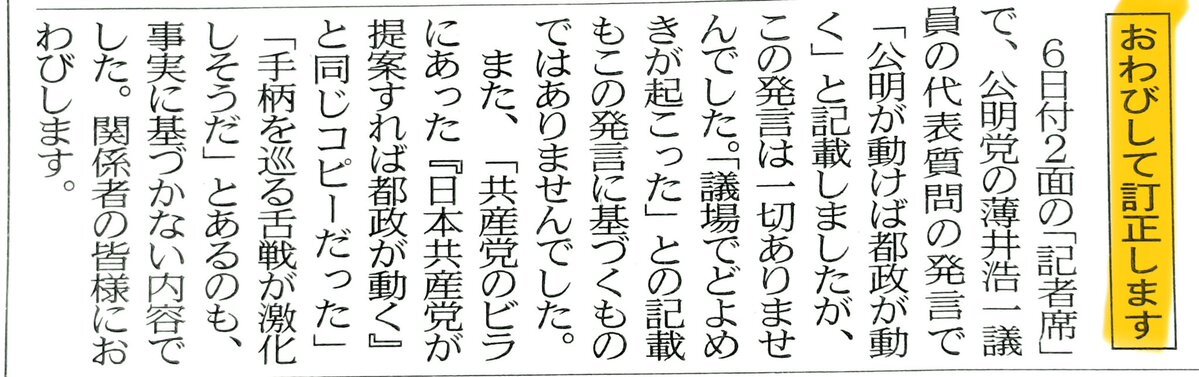 おわびして訂正します
６日付２面の「記者席」
で、公明党の薄井浩一議
員の代表質問の発言で
「公明が動けば都政が動
く」と記載しましたが、
この発言は一切ありませ
んでした。「議場でどよめ
きが起こった」との記載
もこの発言に基づくもの
ではありませんでした。
また、「共産党のビラ
にあった『日本共産党が
提案すれば都政が動く』
と同じコピーだった」
「手柄を巡る舌戦が激化
しそうだ」とあるのも、
事実に基づかない内容で
した。関係者の皆様にお
わびします。